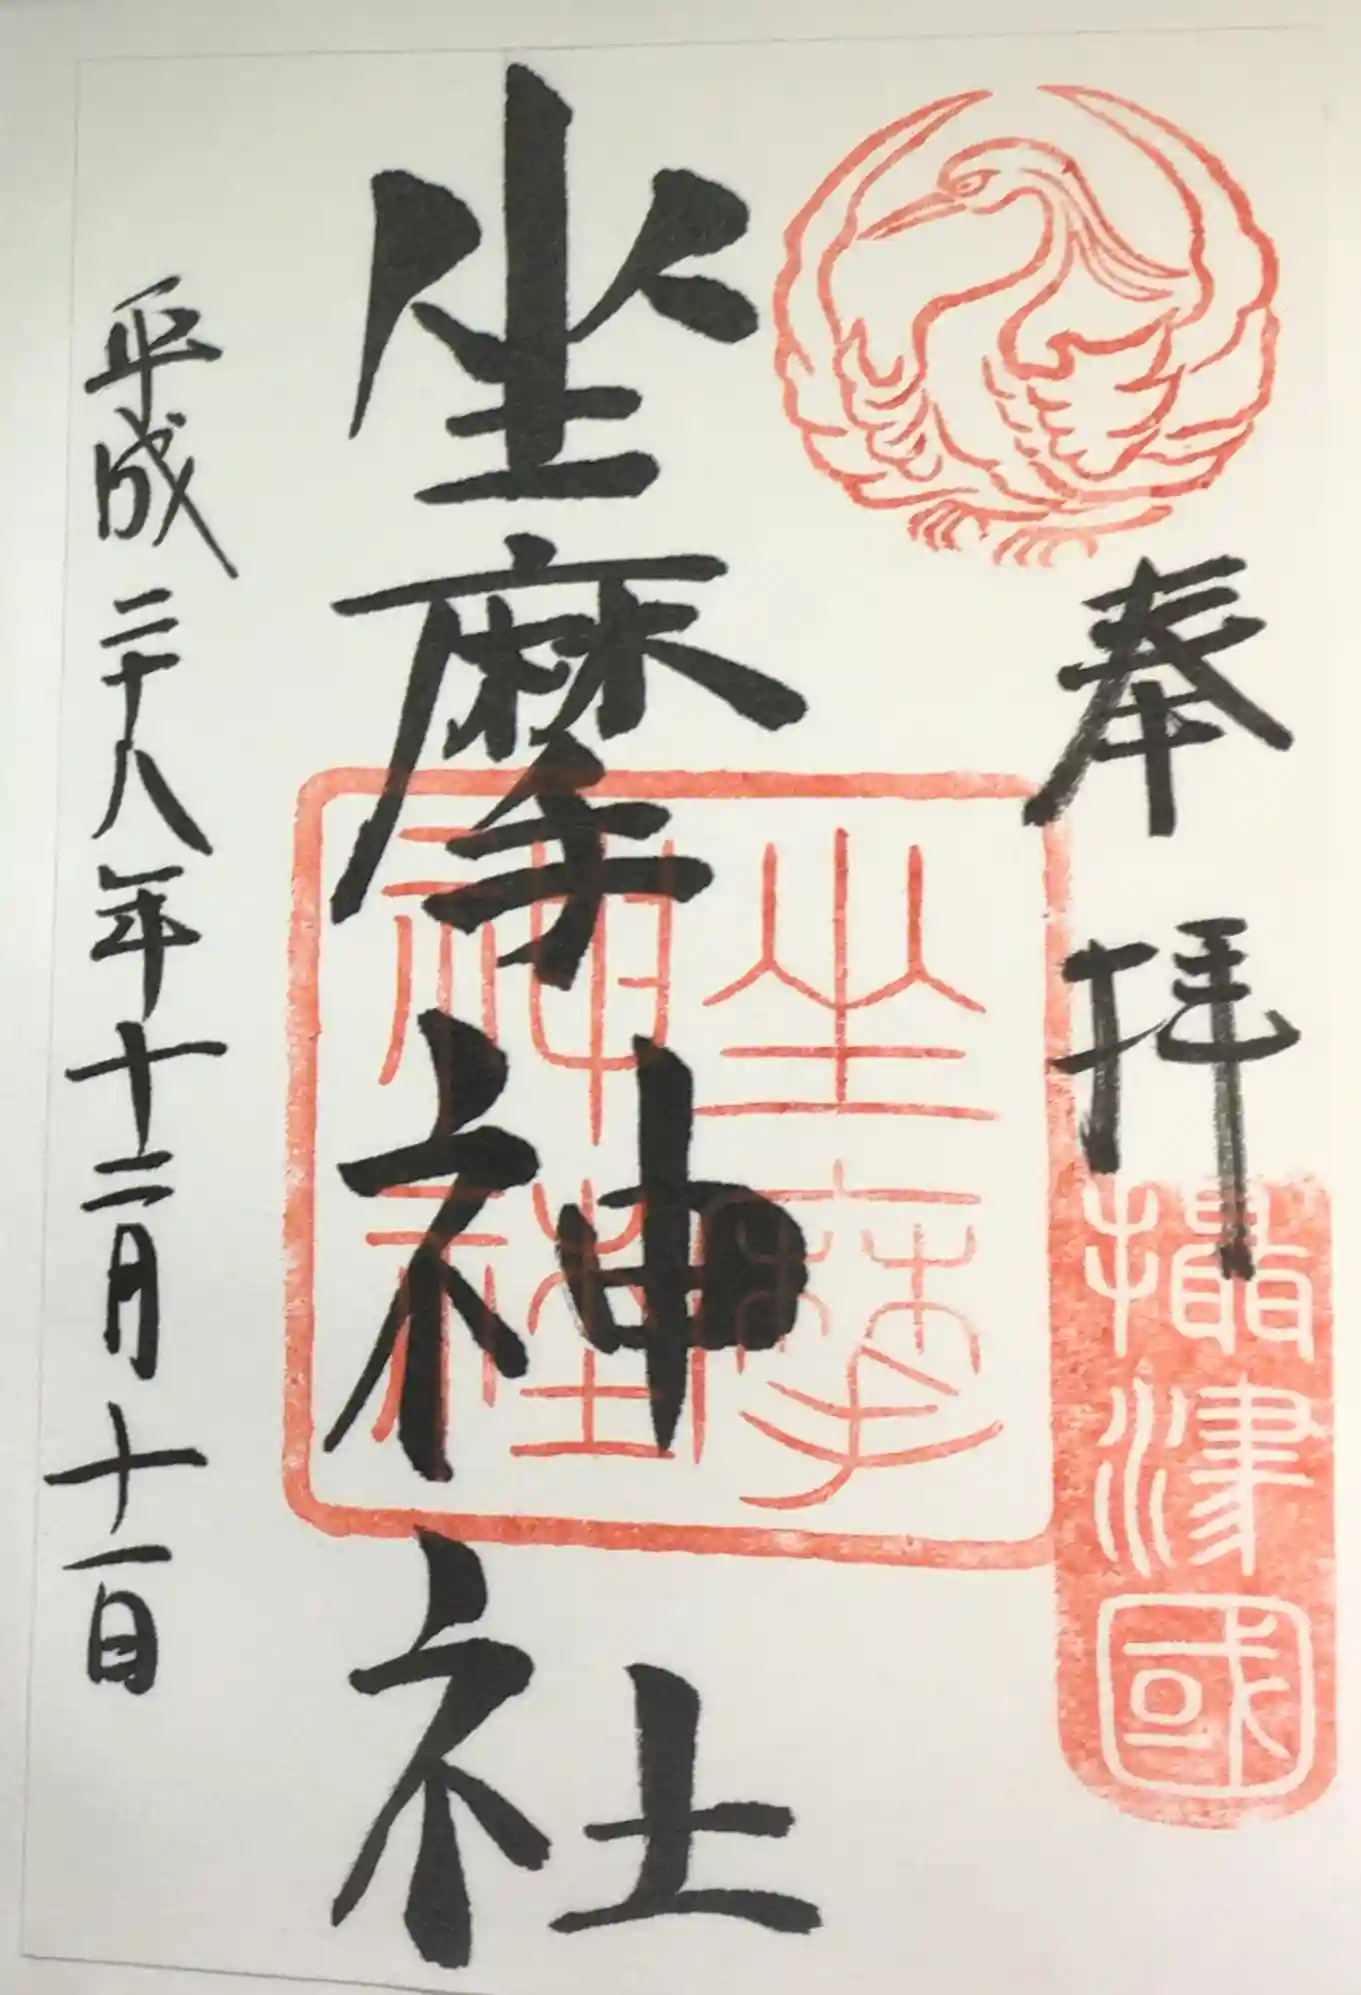 奉拝
攝津國
坐摩神社
坐摩
神社
平成二十八年十二月十一日